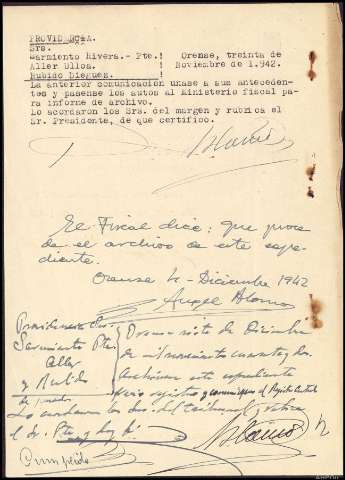 PROVIDENCIA.
Srs.
Sarmiento Rivera.- Pte.! Orense, treinta de
Aller Ulloa. ! Noviembre de 1.942.
Rubido Dieguez. !
La anterior comunicación unase a sus anteceden-
tes y pasense los autos al Ministerio fiscal pa-
ra informe de archivo.
Lo acordaron los Srs. del margen y rubrica el
Sr. Presidente, de que certifico.
El Fiscal dice: que proce-
de el archivo de este expe-
diente.
Orense 4 - Diciembre 1942
Angel Alonso
Providencia Srs.
Sarmiento Pte.
Aller
y Rubido
Orense siete de Diciembre
de mil novecientos cuarenta y dos
Archivese este expediente
previo registro y comuniquese al Registro Central
Lo acordaron los Srs. del tribunal y rubrica
el Sr. Pte. y doy fé.
Cumplido